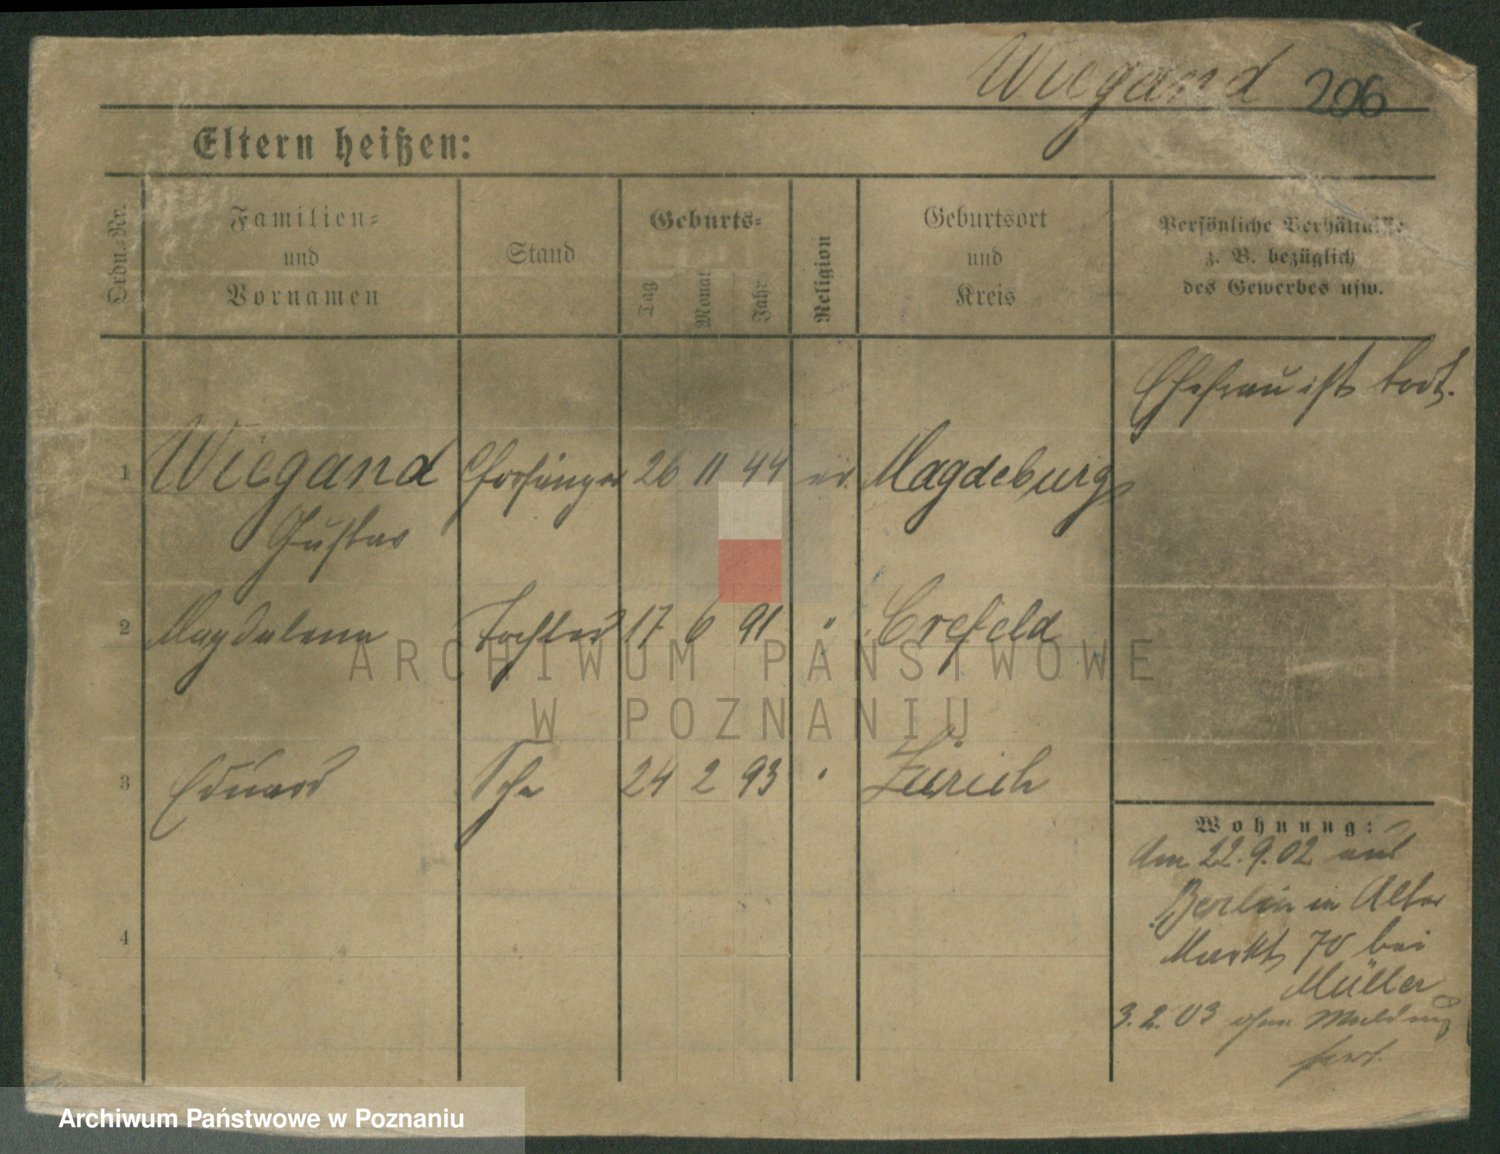 Wiegand 206
Eltern heißen:
Ordn.-Nr.
Familien-
und
Vornamen
Stand
Geburts-
Tag
Monat
Jahr
Religion
Geburtsort
und
Kreis
Persönliche Verhältnisse
z. B. bezüglich
des Gewerbes usw.
Ehefrau ist todt.
1 Wiegand 26 11 44 ev. Magdeburg
Gustav
2 Magdalena Tochter 17 6 91 " Crefeld
3 Eduard 24 2 93 " Zürich
4
Wohnung:
Am 22.9.02 aus
Berlin in Alter
Markt 70 bei
Müller
3.2.03 ohne Meldung
fort.
ARCHIWUM PAŃSTWOWE
W POZNANIU
Archiwum Państwowe w Poznaniu